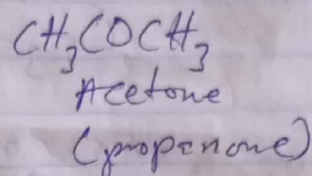 CH₃COCH₃
Acetone
(propanone)